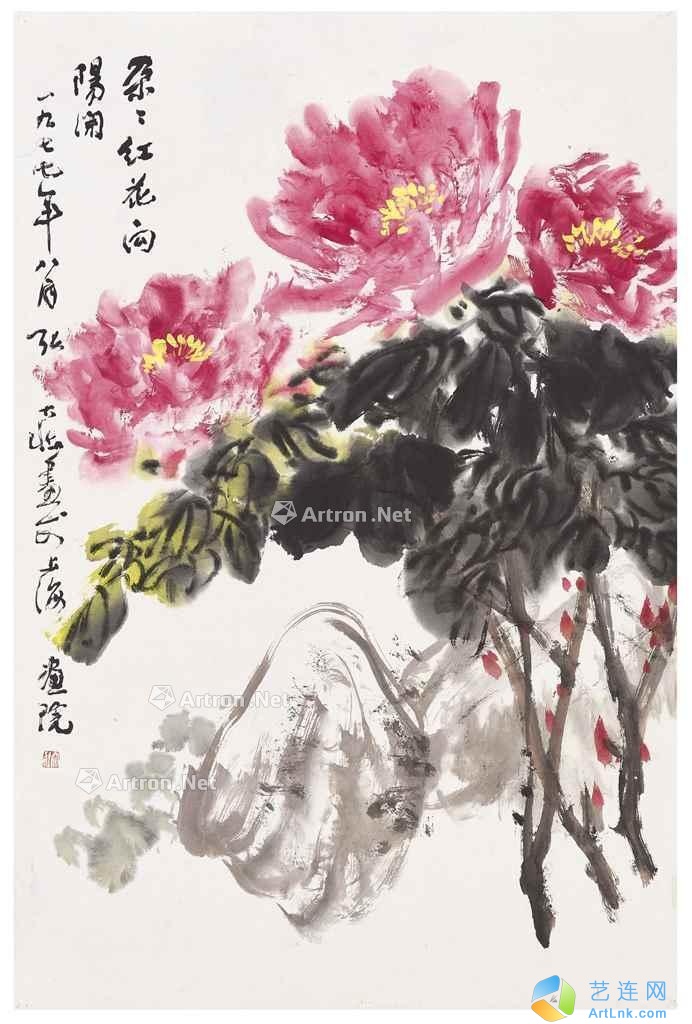 朵朵红花向
陽開
一九七七年八月张大壮畫於上海畫院
Artron.Net
Artron.Net
Artron.Net
艺连网
ArtLnk.com